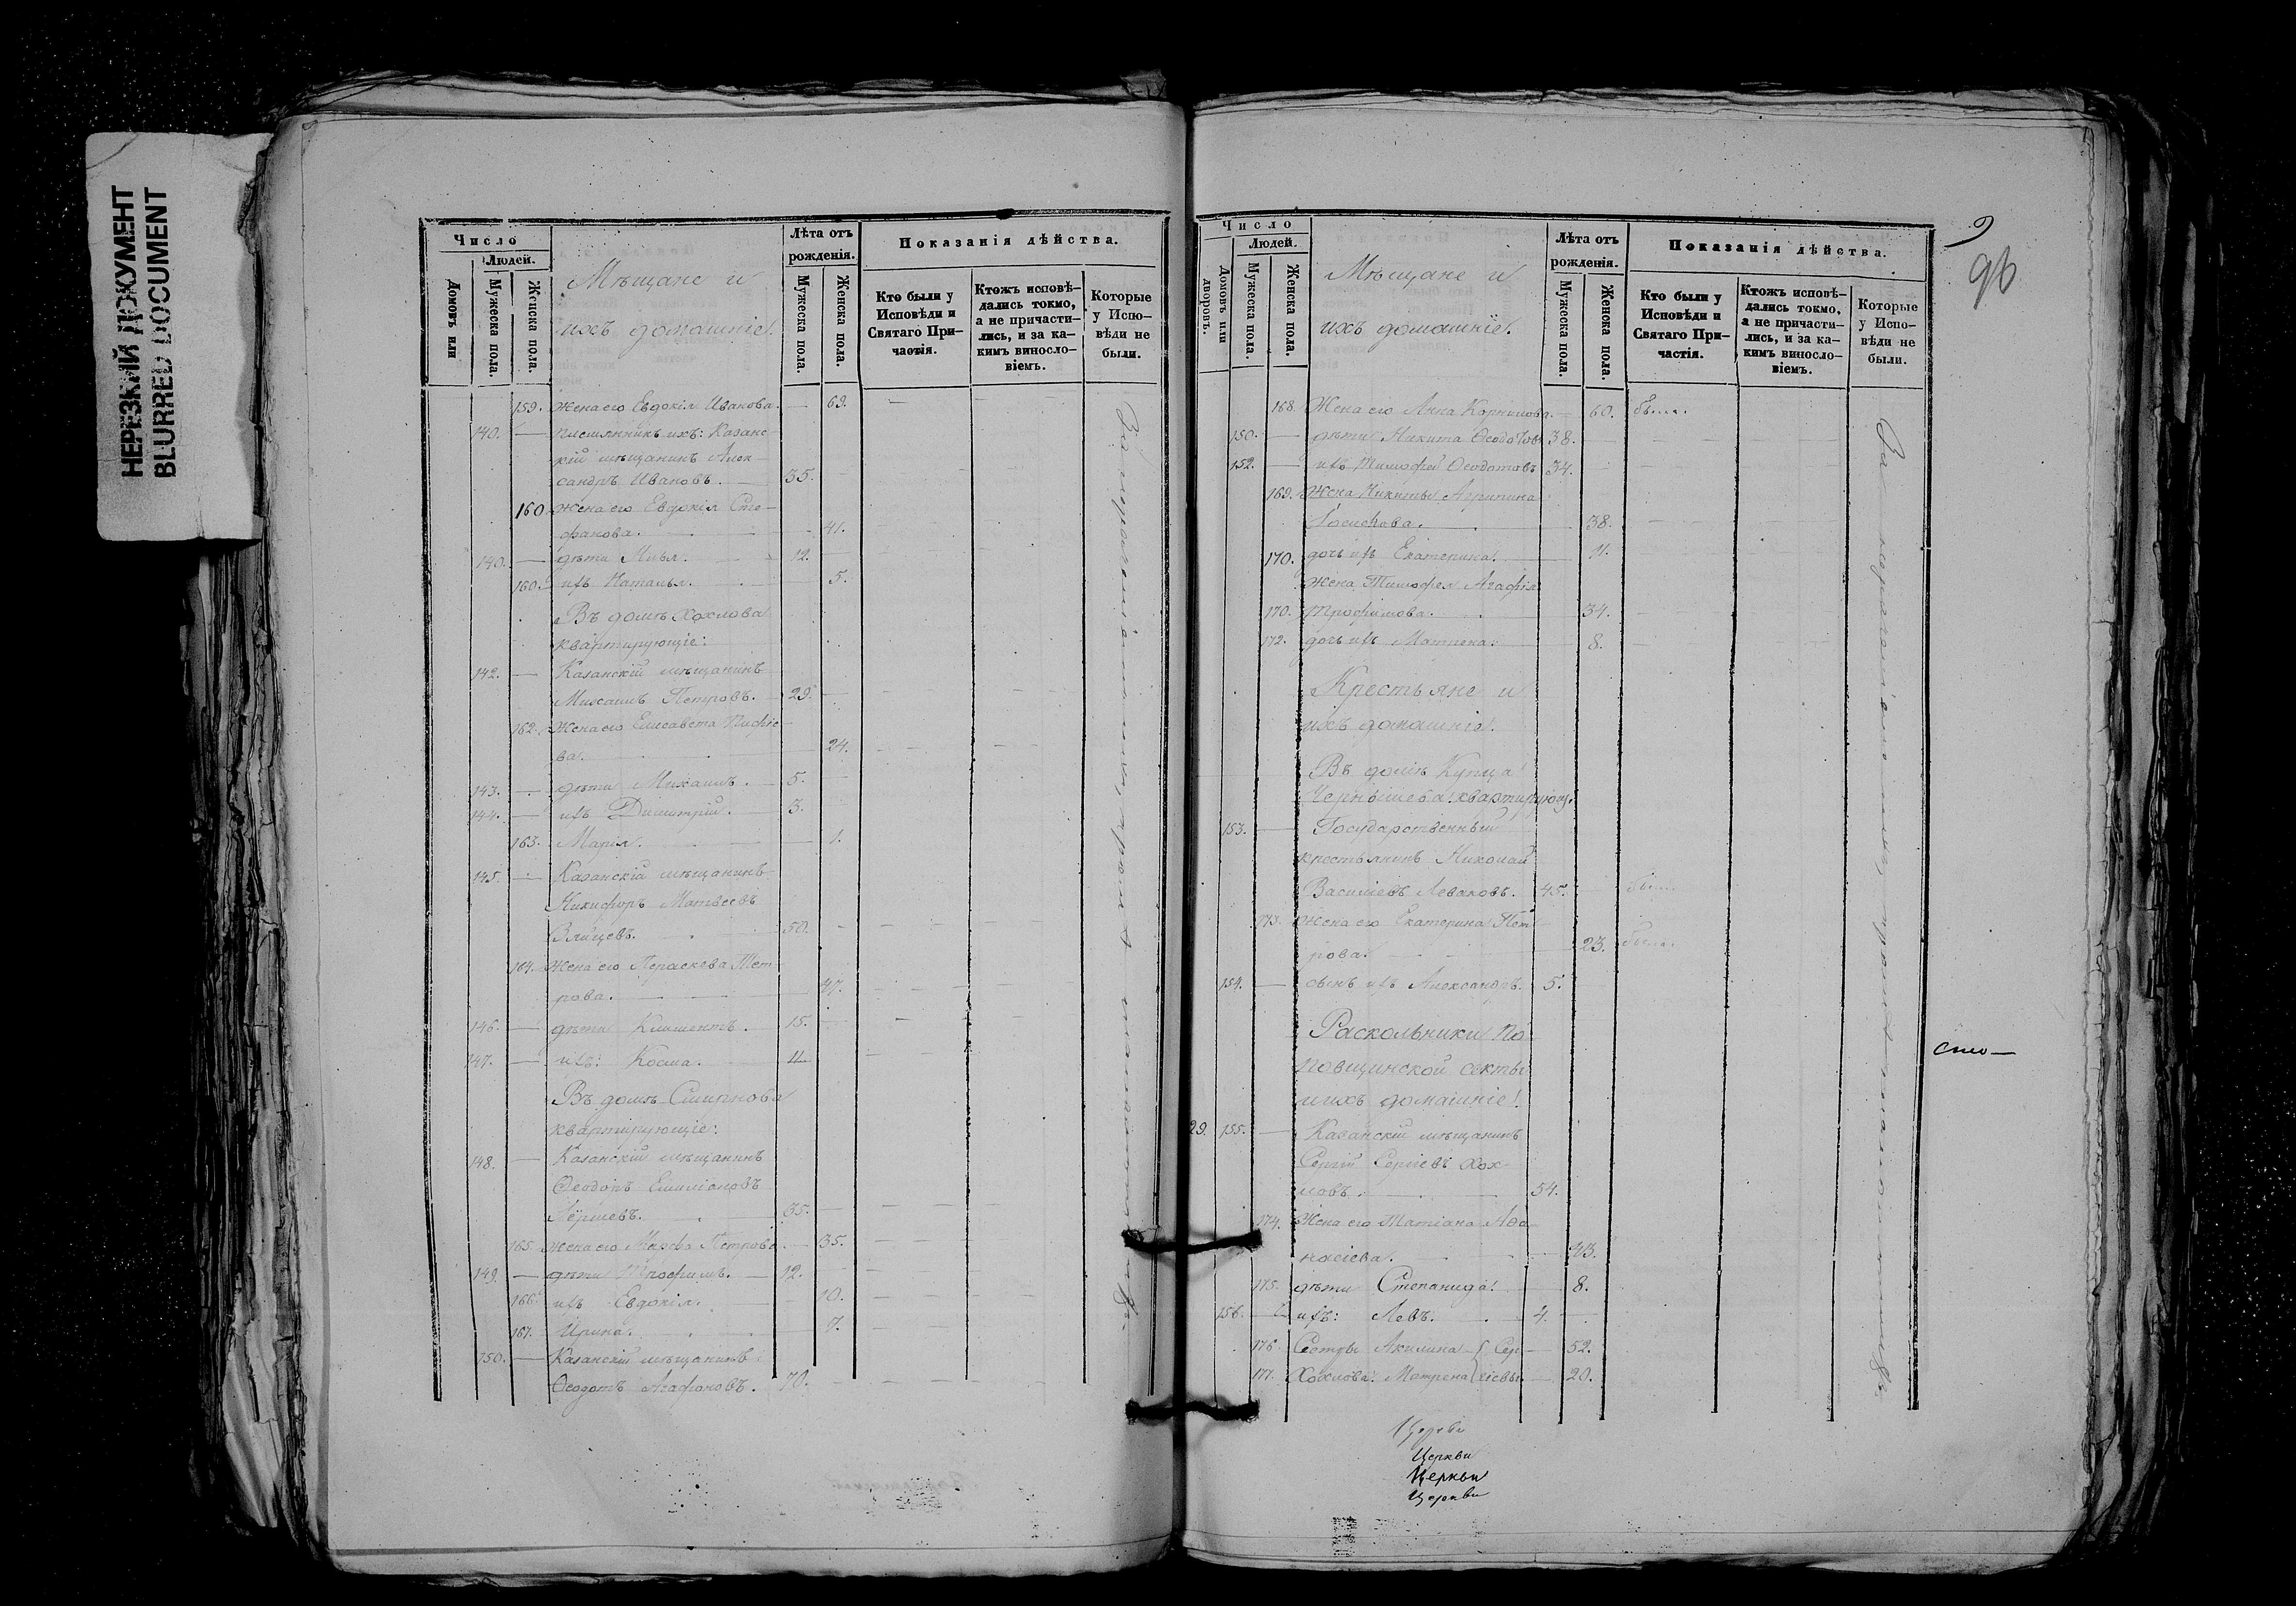 НЕРЕЗКИЙ ДОКУМЕНТ
BLURRED DOCUMENT
Число
Людей.
Домовъ или
Мужеска пола.
Женска пола.
Мѣщане и
ихъ домашніе.
Лѣта отъ
рожденія.
Мужеска пола.
Женска пола.
Показанія дѣйства.
Кто были у
Исповѣди и
Святаго При-
частія.
Ктожъ исповѣ-
дались токмо,
а не причасти-
лись, и за ка-
кимъ винословіемъ.
Которые
у Испо-
вѣди не
были.
159. Жена его Евдокія Иванова. — 69.
140. — племянникъ ихъ: Казанс-
кій мѣщанинъ Алек-
сандръ Ивановъ. 35.
160 Жена его Евдокія Сте-
фанова. 41.
140. — дѣти 12.
160. ихъ Наталья. 5.
Въ домѣ Хохлова
квартирующіе:
142. — Казанскій мѣщанинъ
Михаилъ Петровъ. — 29.
162. Жена его Елисавета
ва. 24.
143. — дѣти Михаилъ. 5.
144. — ихъ Димитрій. 3.
163. Марія. 1.
145. — Казанскій мѣщанинъ
Никифоръ Матвеевъ
50.
164. Жена его Параскева Пет
рова. 47.
146. — дѣти Климентъ. 15.
147. — ихъ: Косма. 11
Въ домѣ Смирнова
квартирующіе:
148. — Казанскій мѣщанинъ
Ѳеодоръ Емиліановъ
35.
165. Жена его Марѳа Петрова. — 35.
149. — дѣти Трофимъ. — 12.
166. ихъ Евдокія. 10.
167. Ирина. 7.
150. — Казанскій мѣщанинъ
Ѳеодотъ Агафоновъ. 70.
9
96
Число
Людей.
Домовъ или
дворовъ.
Мужеска пола.
Женска пола.
Мѣщане и
ихъ домашніе.
Лѣта отъ
рожденія.
Мужеска пола.
Женска пола.
Показанія дѣйства.
Кто были у
Исповѣди и
Святаго При-
частія.
Ктожъ исповѣ-
дались токмо,
а не причасти-
лись, и за ка-
кимъ виносло-
віемъ.
Которые
у Испо-
вѣди не
были.
168. Жена его Анна Корнилова. — 60. была.
150. — дѣти Никита Ѳеодотовъ 38.
152. — ихъ Тимофей Ѳеодотовъ 34.
169. Жена Никиты Агрипина
Іосифова. 38.
170. дочь ихъ Екатерина. 11.
Жена Тимофея Агафія
170. Трофимова. 34.
172. дочь ихъ Матрена. 8.
Крестьяне и
ихъ домашніе.
Въ домѣ Купца
Чернышева квартирующ.
153. — Государственный
крестьянинъ Николай
Василіевъ Леваковъ. 45.
173. Жена его Екатерина Пет
рова. 23. была.
154. — сынъ ихъ Александръ. 5.
Раскольники По
повщинской секты
и ихъ домашніе.
29. 155. — Казанскій мѣщанинъ
Сергій Сергіевъ Хох-
ловъ. 54.
174. Жена его Татіана Аѳа-
насіева. 43.
175. дѣти Степанида. 8.
156. — ихъ: Левъ. 4.
176. Сестры Акилина Сер- 52.
177. Хохлова: Матрена гіевы 20.
Церкви
Церкви
Церкви
Церкви